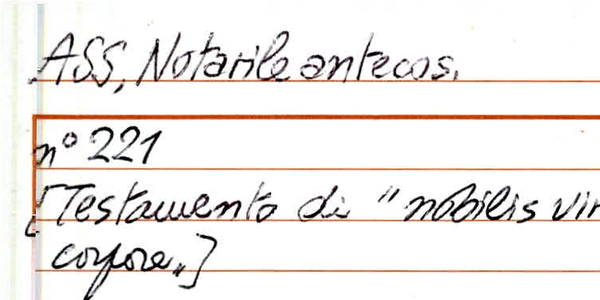 ASS, Notarile antecos.
n° 221
[Testamento di "nobilis vir
corpore"]